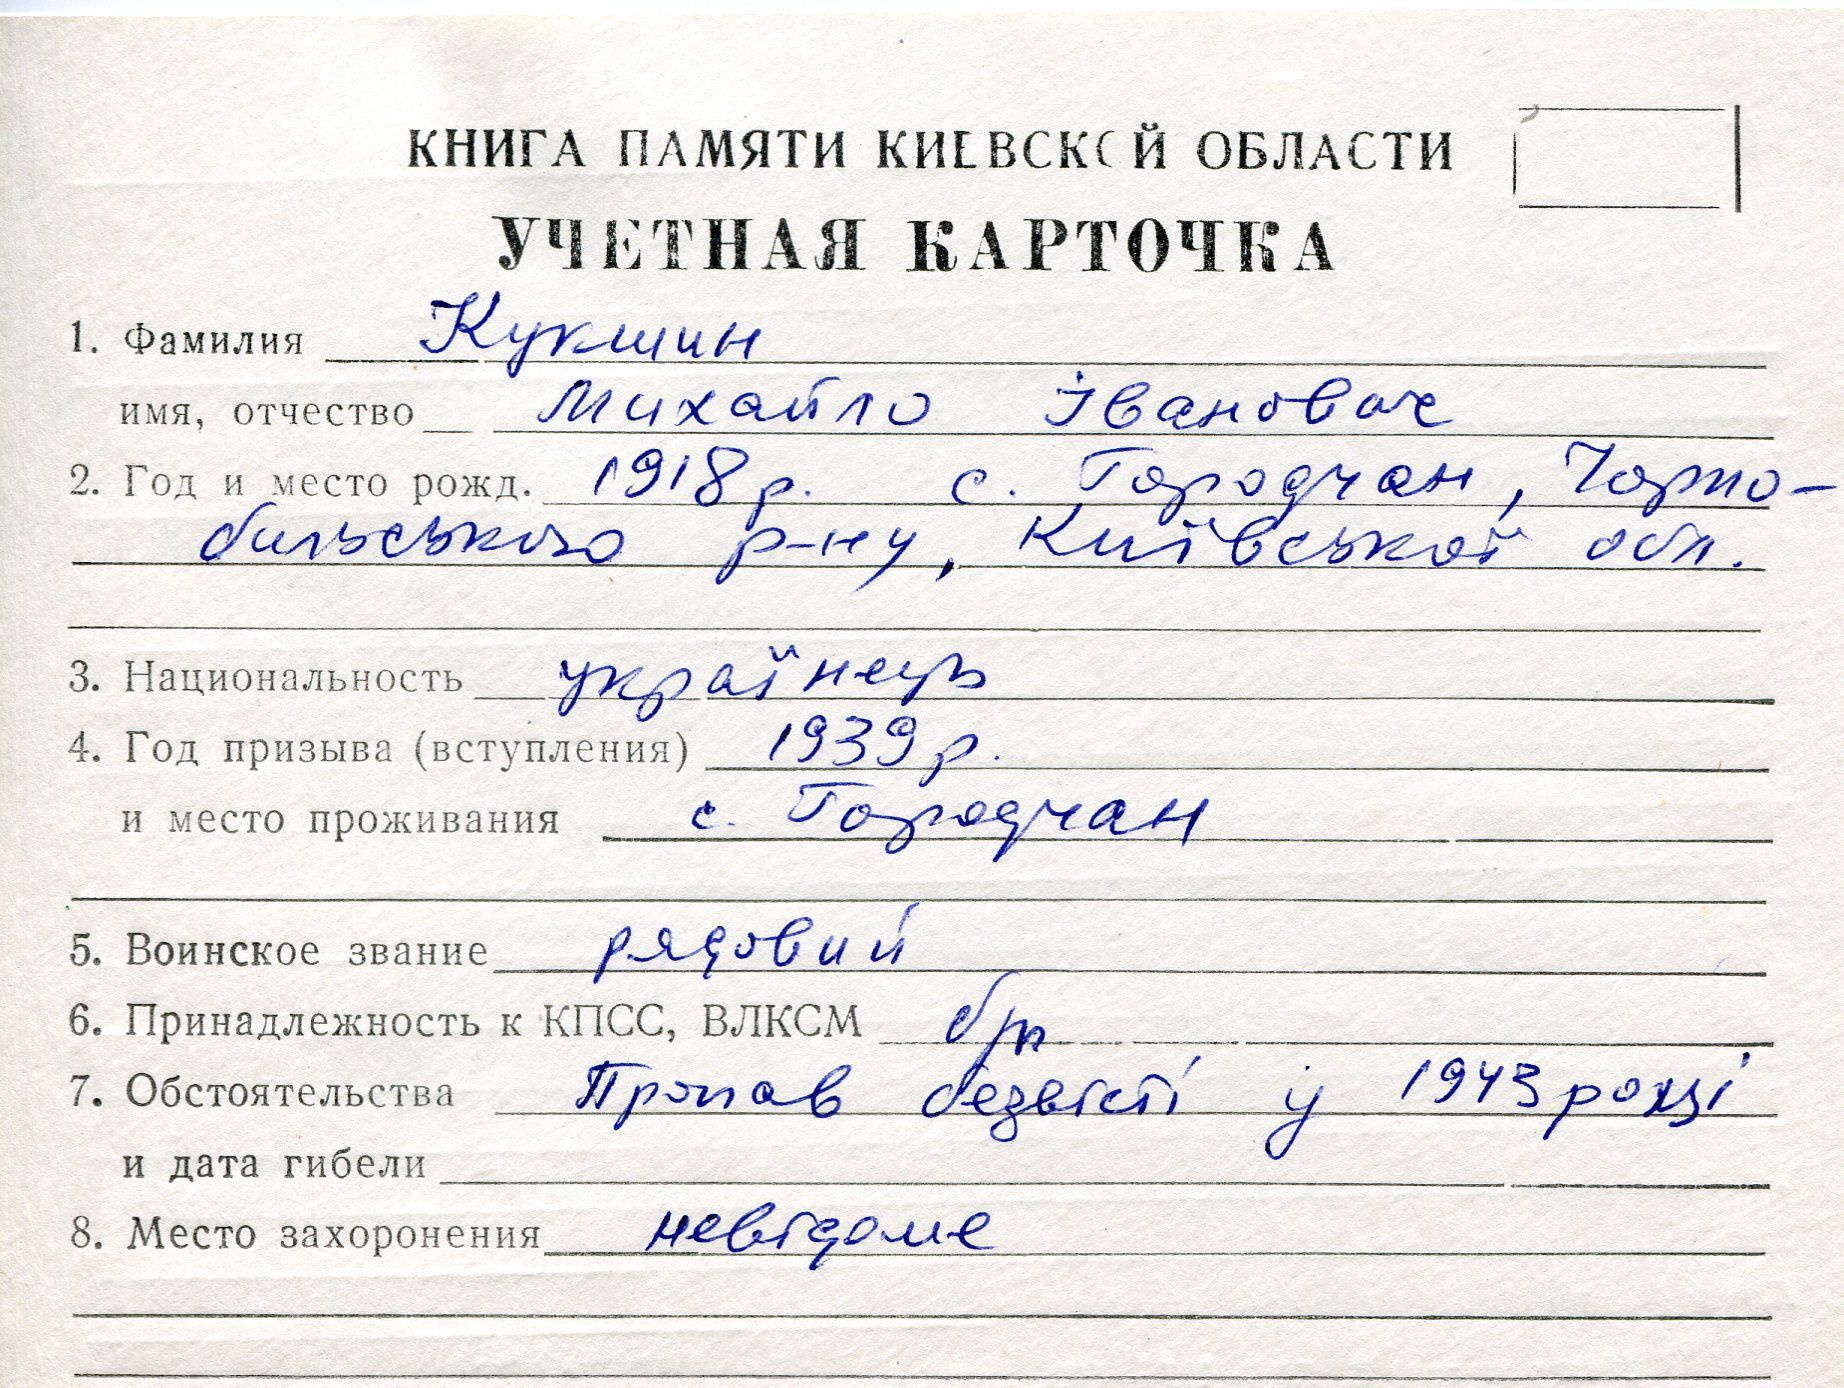 КНИГА ПАМЯТИ КИЕВСКОЙ ОБЛАСТИ
УЧЕТНАЯ КАРТОЧКА
1. Фамилия Кукшин
имя, отчество Михайло Іванович
2. Год и место рожд. 1918 р. с. Городчан, Чорно-
бильського р-ну, Київської обл.
3. Национальность українець
4. Год призыва (вступления) 1939 р.
и место проживания с. Городчан
5. Воинское звание рядовий
6. Принадлежность к КПСС, ВЛКСМ б/п
7. Обстоятельства Пропав безвісті у 1943 році
и дата гибели
8. Место захоронения невідоме